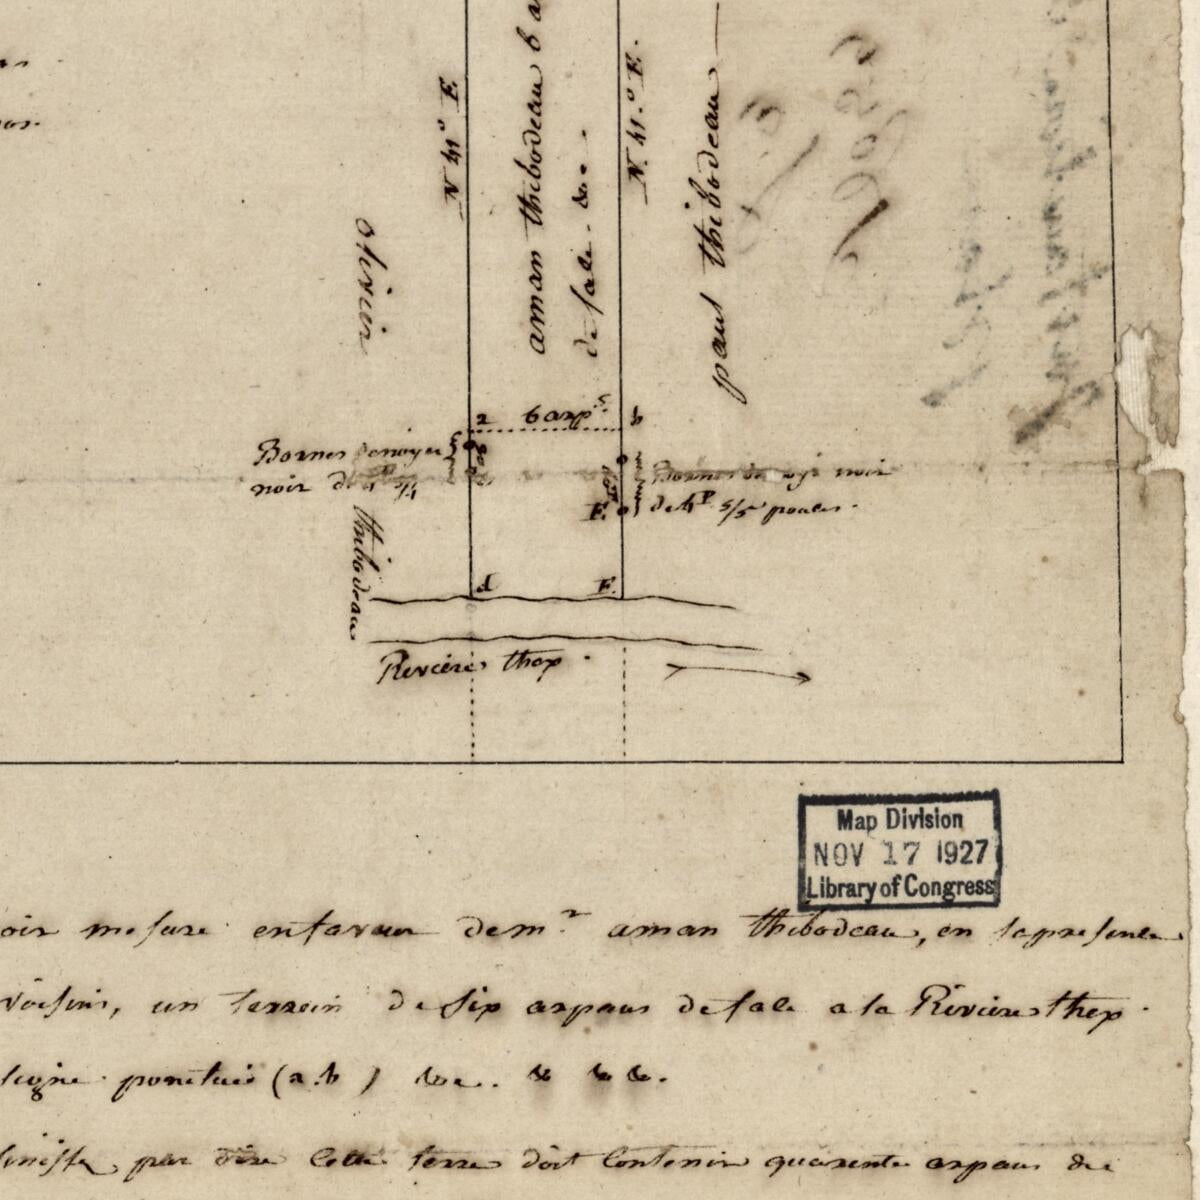 N 41° E.
aman thibodeau 6 a
de face &c.
N. 41.° E.
paul thibodeau
olivier
thibodeau
a 6 arp.s b
Bornes de noyer
noir de 4
Bornes de noir
de 4 P 5/5 pouces.
F.
d F.
Riviere thex.
Map Division
NOV 17 1927
Library of Congress
oir mesuré en faveur de m.r aman thibodeau, en la presence
voisins, un terrein de Six arpans de face a la Riviere thex.
ligne ponctuée (a.b) &c. & & &.
par cette terre doit Contenir quarente arpans de